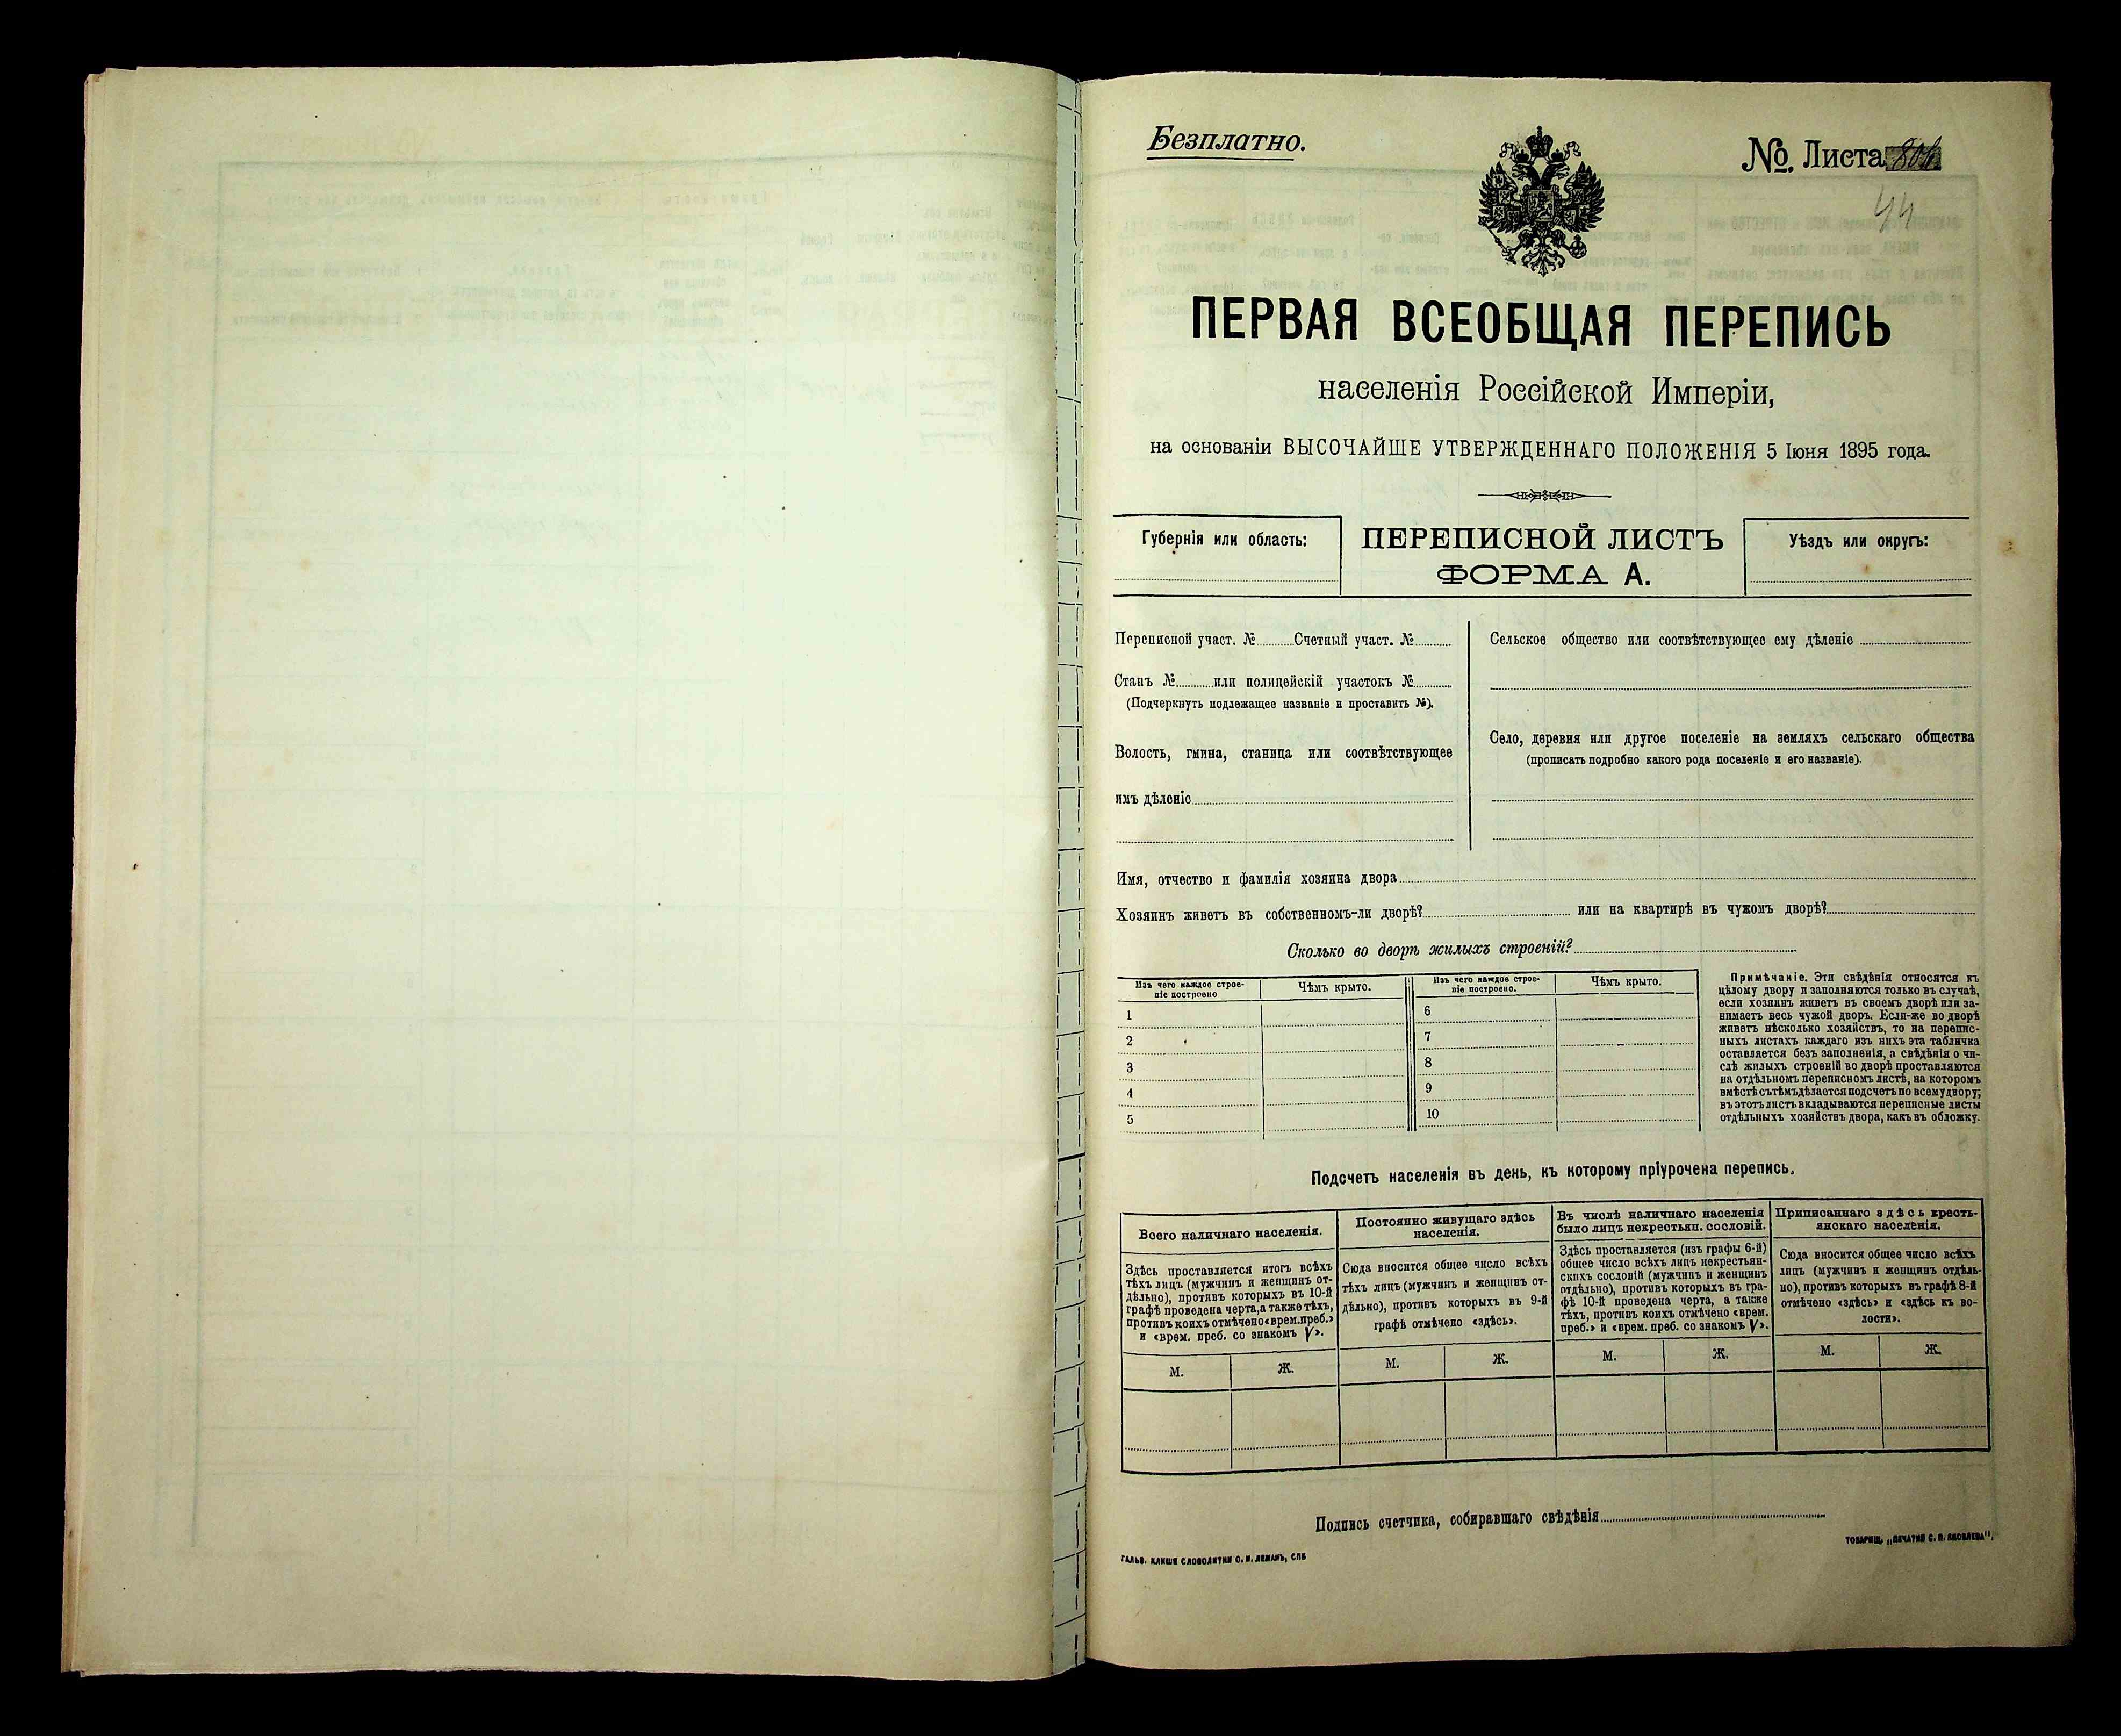 Безплатно.
№. Листа
44
ПЕРВАЯ ВСЕОБЩАЯ ПЕРЕПИСЬ
населенія Россійской Имперіи,
на основаніи ВЫСОЧАЙШЕ УТВЕРЖДЕННАГО ПОЛОЖЕНІЯ 5 Іюня 1895 года.
Губернія или область:
ПЕРЕПИСНОЙ ЛИСТЪ
ФОРМА А.
Уѣздъ или округъ:
Переписной участ. № Счетный участ. №
Станъ № или полицейскій участокъ №
(Подчеркнуть подлежащее названіе и проставить №).
Волость, гмина, станица или соотвѣтствующее
имъ дѣленіе
Сельское общество или соотвѣтствующее ему дѣленіе
Село, деревня или другое поселеніе на земляхъ сельскаго общества
(прописать подробно какого рода поселеніе и его названіе).
Имя, отчество и фамилія хозяина двора
Хозяинъ живетъ въ собственномъ-ли дворѣ? или на квартирѣ въ чужомъ дворѣ?
Сколько во дворѣ жилыхъ строеній?
Изъ чего каждое строе-
ніе построено
Чѣмъ крыто.
Изъ чего каждое строе-
ніе построено.
Чѣмъ крыто.
1
2
3
4
5
6
7
8
9
10
Примѣчаніе. Эти свѣдѣнія относятся къ
цѣлому двору и заполняются только въ случаѣ,
если хозяинъ живетъ въ своемъ дворѣ или за-
нимаетъ весь чужой дворъ. Если-же во дворѣ
живетъ нѣсколько хозяйствъ, то на перепис-
ныхъ листахъ каждаго изъ нихъ эта табличка
оставляется безъ заполненія, а свѣдѣнія о чи-
слѣ жилыхъ строеній во дворѣ проставляются
на отдѣльномъ переписномъ листѣ, на которомъ
вмѣстѣ съ тѣмъ дѣлается подсчетъ по всему двору;
въ этотъ листъ вкладываются переписные листы
отдѣльныхъ хозяйствъ двора, какъ въ обложку.
Подсчетъ населенія въ день, къ которому пріурочена перепись.
Всего наличнаго населенія.
Здѣсь проставляется итогъ всѣхъ
тѣхъ лицъ (мужчинъ и женщинъ от-
дѣльно), противъ которыхъ въ 10-й
графѣ проведена черта, а также тѣхъ,
противъ коихъ отмѣчено «врем. преб.»
и «врем. преб. со знакомъ V».
М. Ж.
Постоянно живущаго здѣсь
населенія.
Сюда вносится общее число всѣхъ
тѣхъ лицъ (мужчинъ и женщинъ от-
дѣльно), противъ которыхъ въ 9-й
графѣ отмѣчено «здѣсь».
М. Ж.
Въ числѣ наличнаго населенія
было лицъ некрестьян. сословій.
Здѣсь проставляется (изъ графы 6-й)
общее число всѣхъ лицъ некрестьян-
скихъ сословій (мужчинъ и женщинъ
отдѣльно), противъ которыхъ въ гра-
фѣ 10-й проведена черта, а также
тѣхъ, противъ коихъ отмѣчено «врем.
преб.» и «врем. преб. со знакомъ V».
М. Ж.
Приписаннаго здѣсь кресть-
янскаго населенія.
Сюда вносится общее число всѣхъ
лицъ (мужчинъ и женщинъ отдѣль-
но), противъ которыхъ въ графѣ 8-й
отмѣчено «здѣсь» и «здѣсь къ во-
лости».
М. Ж.
Подпись счетчика, собиравшаго свѣдѣнія
ГАЛЬВ. КЛИШЕ СЛОВОЛИТНИ О. И. ЛЕМАНЪ, СПБ
ТОВАРИЩ. „ПЕЧАТНЯ С. П. ЯКОВЛЕВА“.